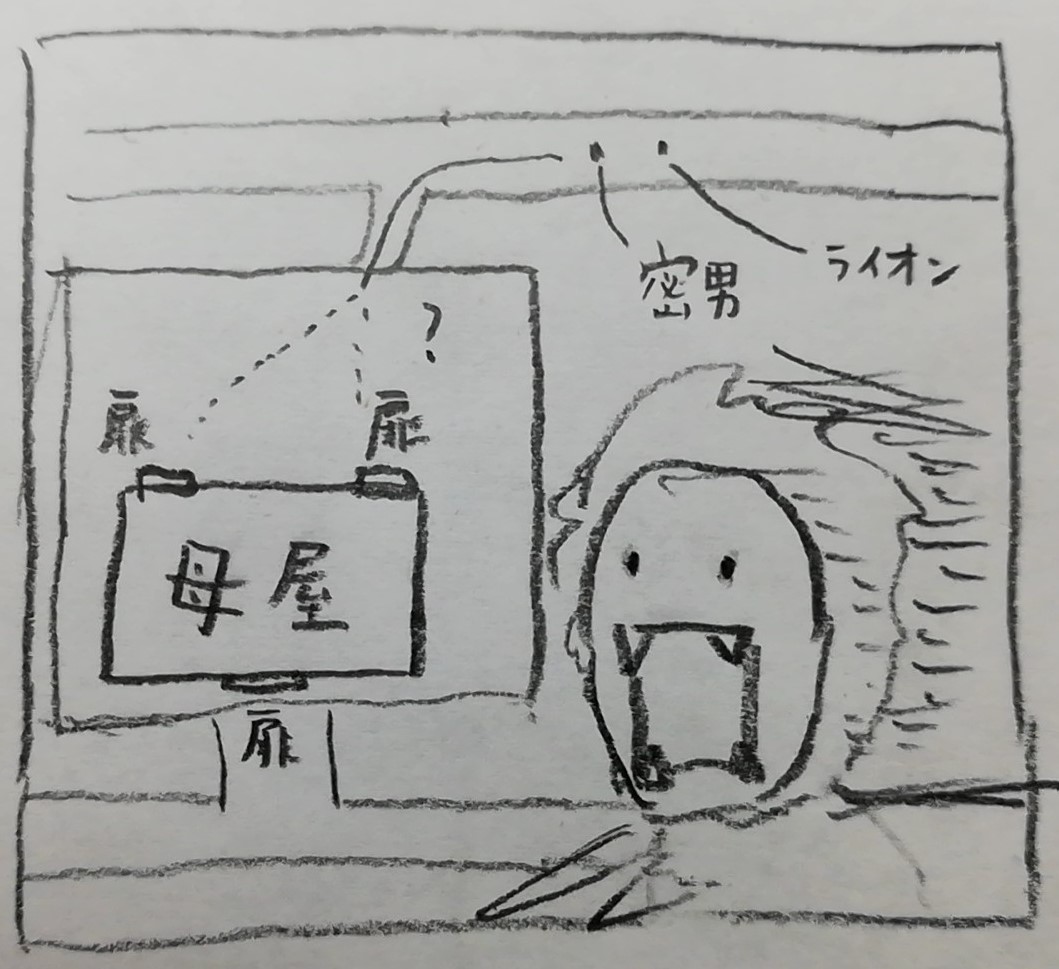 ライオン
密男
?
扉 扉
母屋
扉